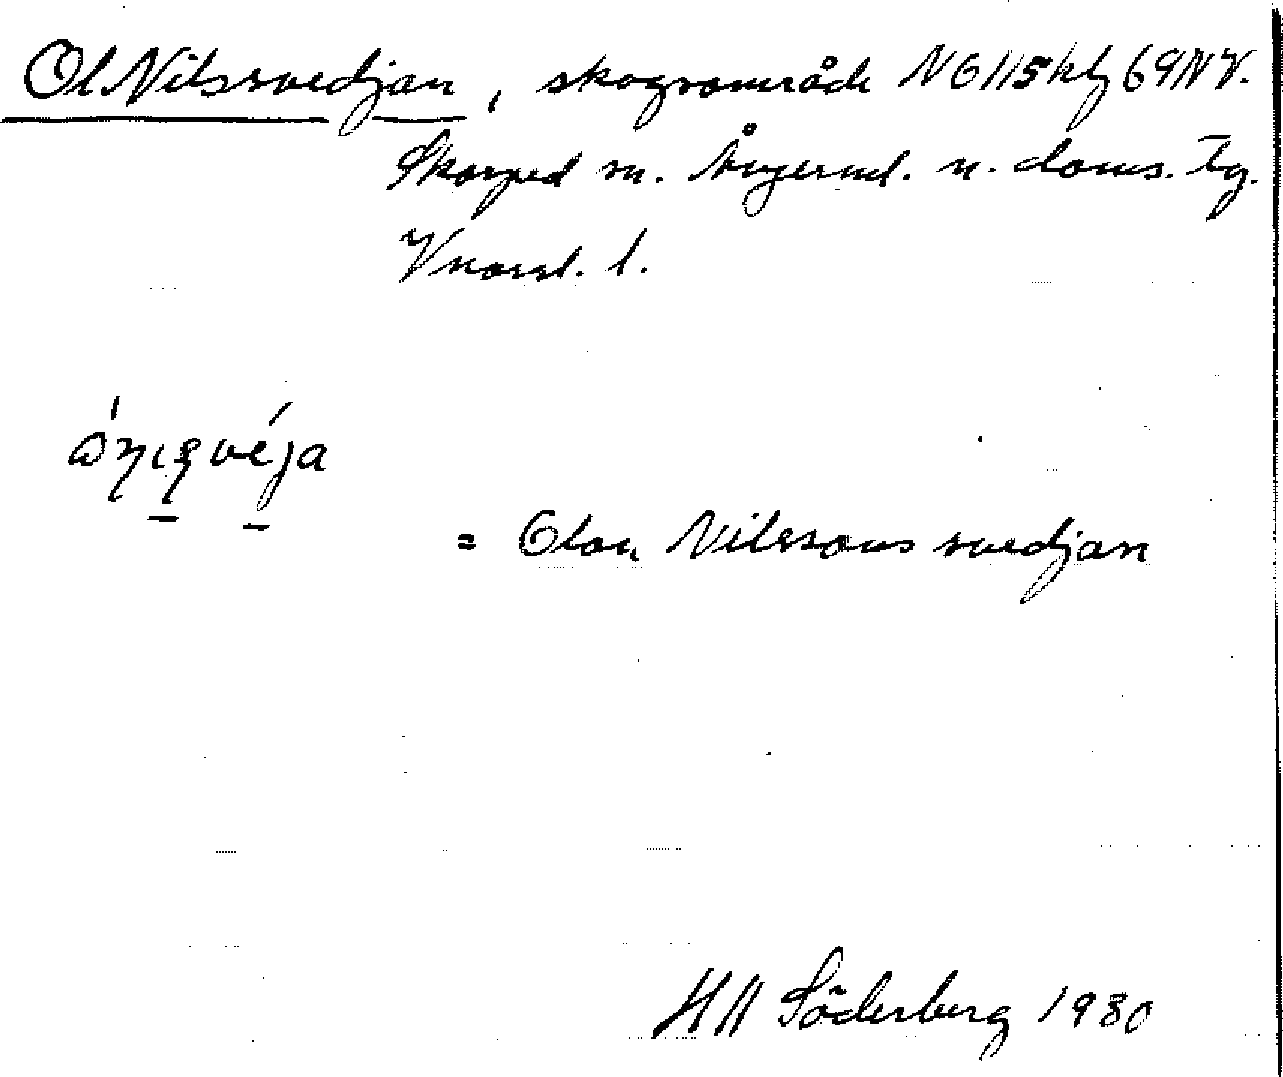 Ol Nilssvedjan, skogsområde NG115kly69NV.
Skorped sn. Ångerml. n. doms. Tg.
Vnorrl. l.
= Olov Nilssons svedjan
HN Söderberg 1930